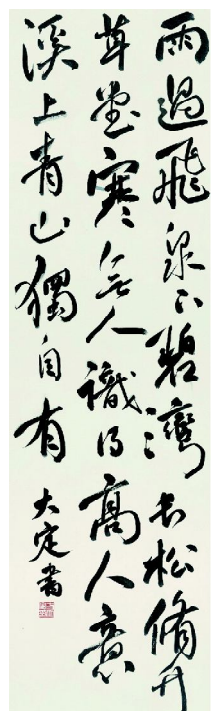 雨過飛泉下碧灣長松脩竹
草堂寒無人識得高人意
溪上青山獨自看
大定書